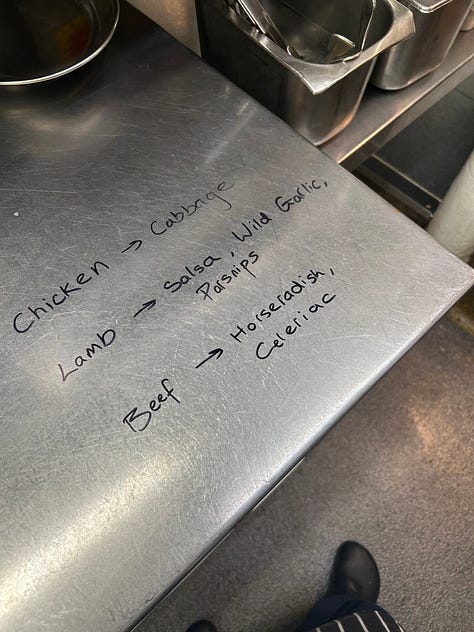 Chicken → Cabbage
Lamb → Salsa, Wild Garlic,
Parsnips
Beef → Horseradish,
Celeriac